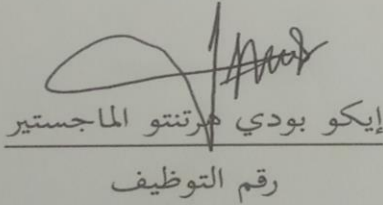 إيكو بودي هرتنتو الماجستير
رقم التوظيف